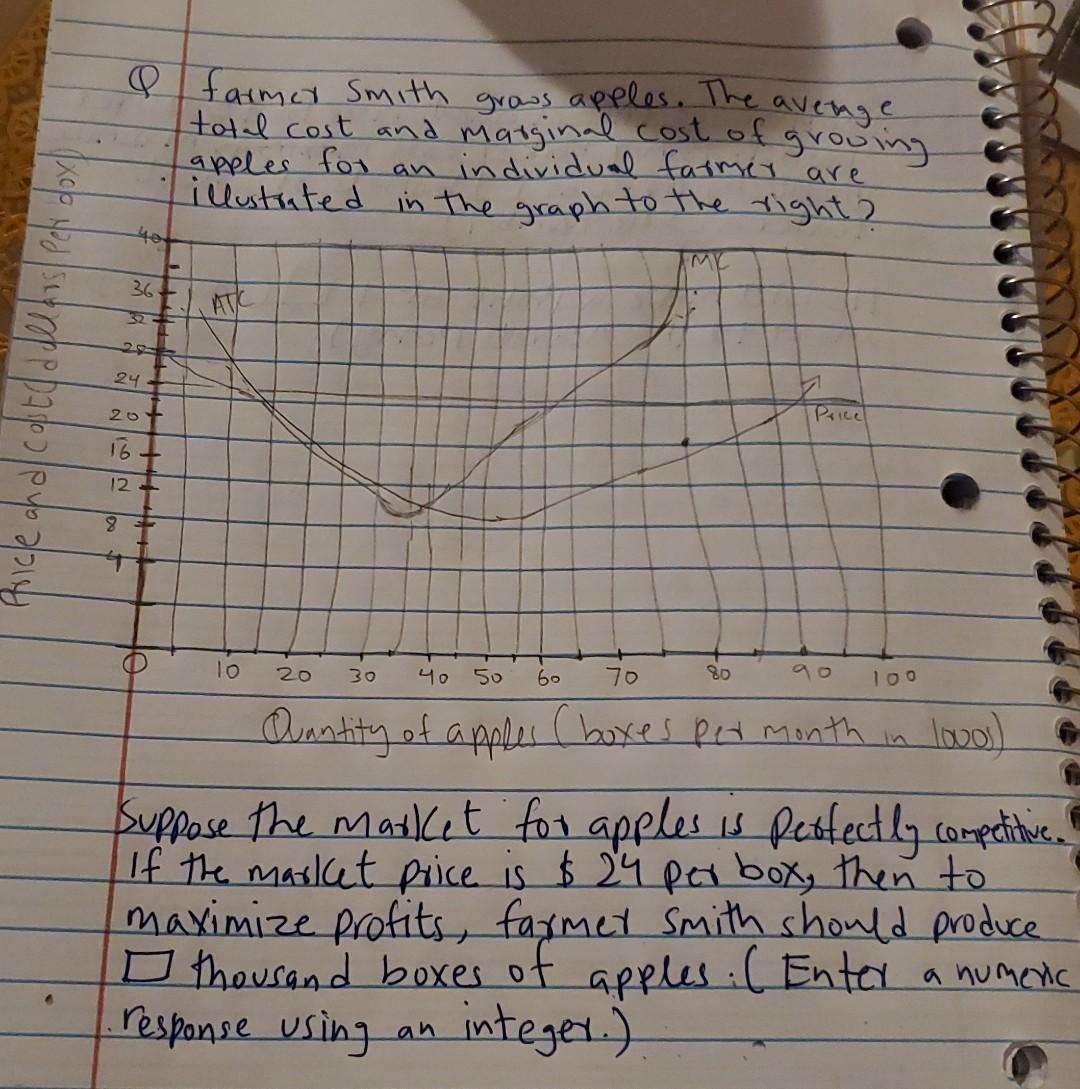 Q farmer Smith grows apples. The average
total cost and marginal cost of growing
apples for an individual farmer are
illustrated in the graph to the right?
Price and cost (dollars per box)
40
36
32
28
24
20
16
12
8
4
ATC
MC
Price
0 10 20 30 40 50 60 70 80 90 100
Quantity of apples (boxes per month in 1000s)
Suppose the market for apples is perfectly competitive.
If the market price is $ 24 per box, then to
maximize profits, farmer Smith should produce
thousand boxes of apples. (Enter a numeric
response using an integer.)